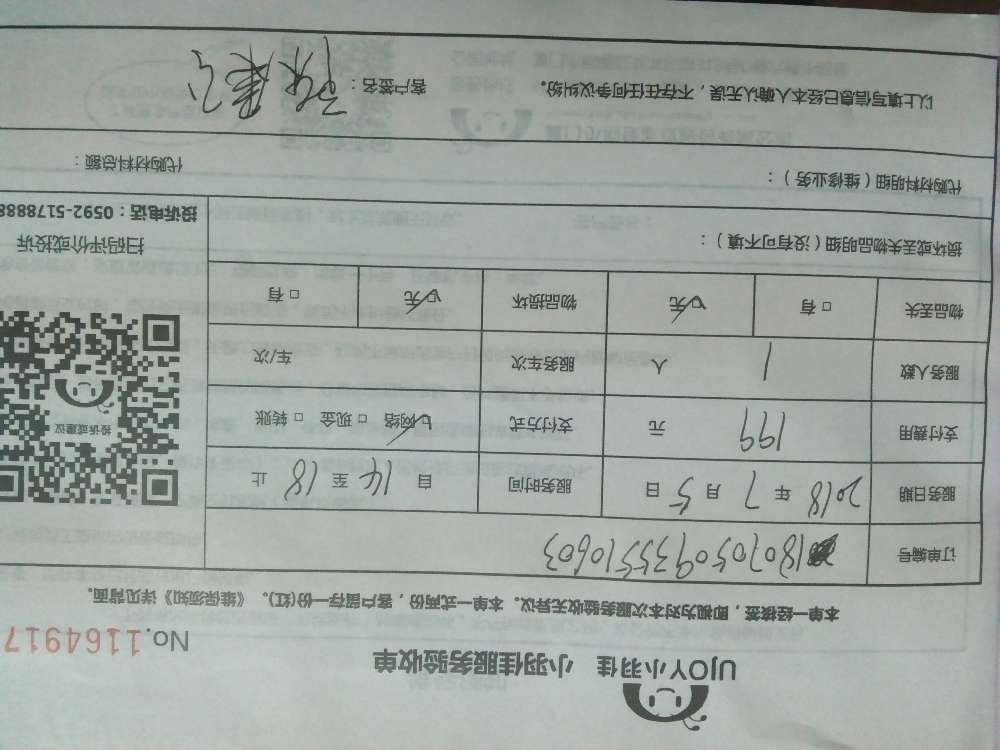 UJOY小羽佳 小羽佳服务验收单
No.1164917
本单一经核签，即视为对本次服务验收无异议。本单一式两份，客户留存一份(红)。《维保须知》详见背面。
订单编号 1807050935510603
服务日期 2018 年 7 月 5 日 服务时间 自 14 至 18 止
支付费用 199 元 支付方式 ☑网络 □ 现金 □ 转账
服务人数 1 人 服务车次 车/次
物品丢失 □ 有 ☑无 物品损坏 ☑无 □ 有
投诉或建议
扫码评价或投诉
投诉电话：0592-5178888
损坏或丢失物品明细（没有可不填）：
代购材料明细（维修业务）： 代购材料总额：
以上填写信息已经本人确认无误，不存在任何争议纠纷。 客户签名：